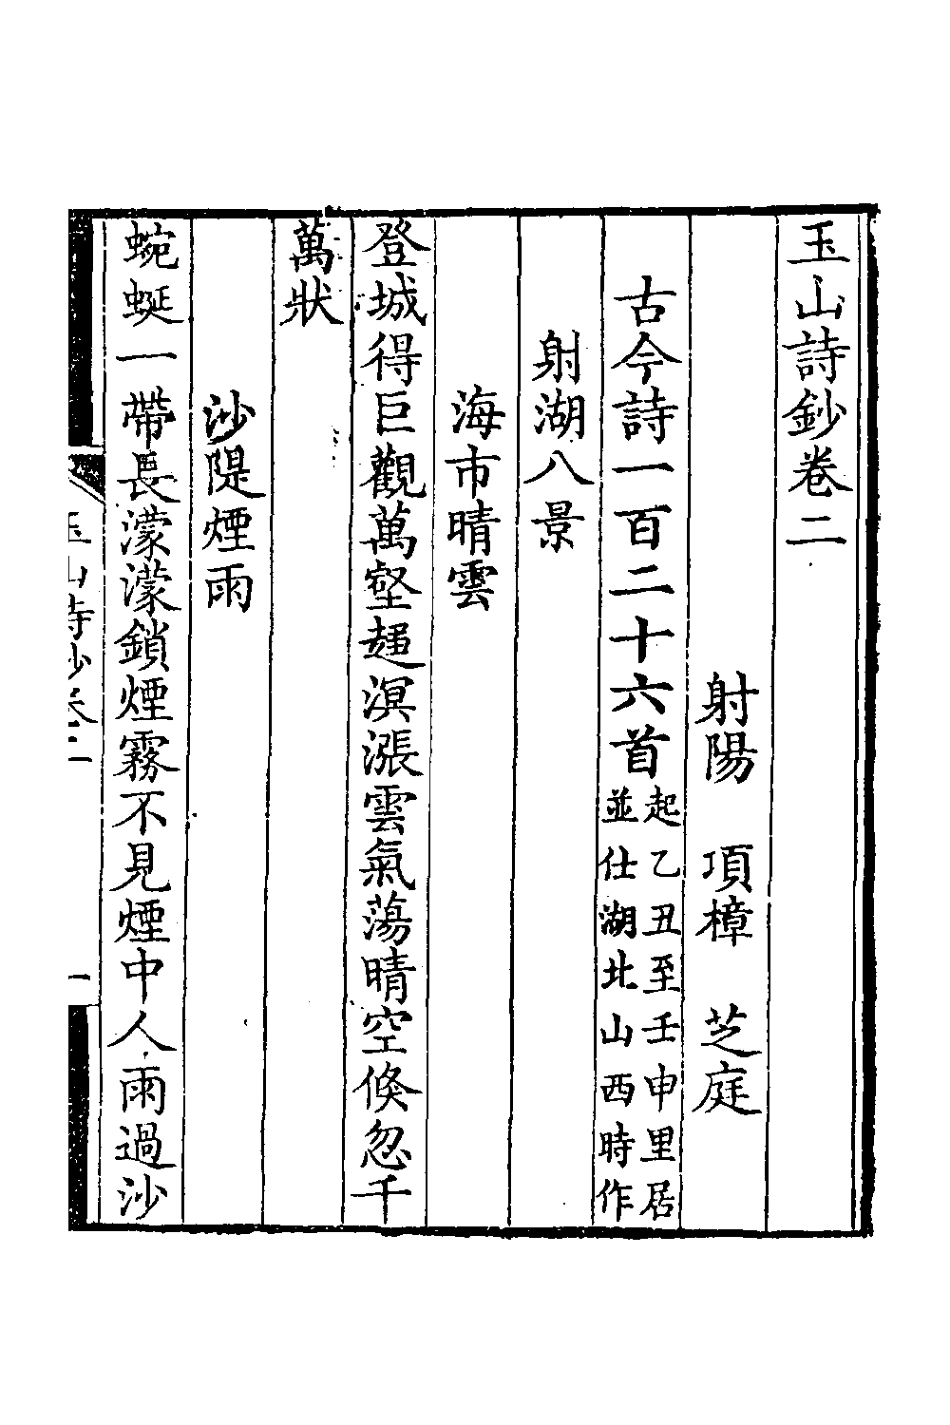 玉山詩鈔卷二
射陽　項樟　芝庭
古今詩一百二十六首起乙丑至壬申里居
並仕湖北山西時作
射湖八景
海市晴雲
登城得巨觀萬壑趨溟漲雲氣蕩晴空倏忽千
萬狀
沙隄煙雨
蜿蜒一帶長濛濛鎖煙霧不見煙中人雨過沙
玉山詩鈔卷二
一